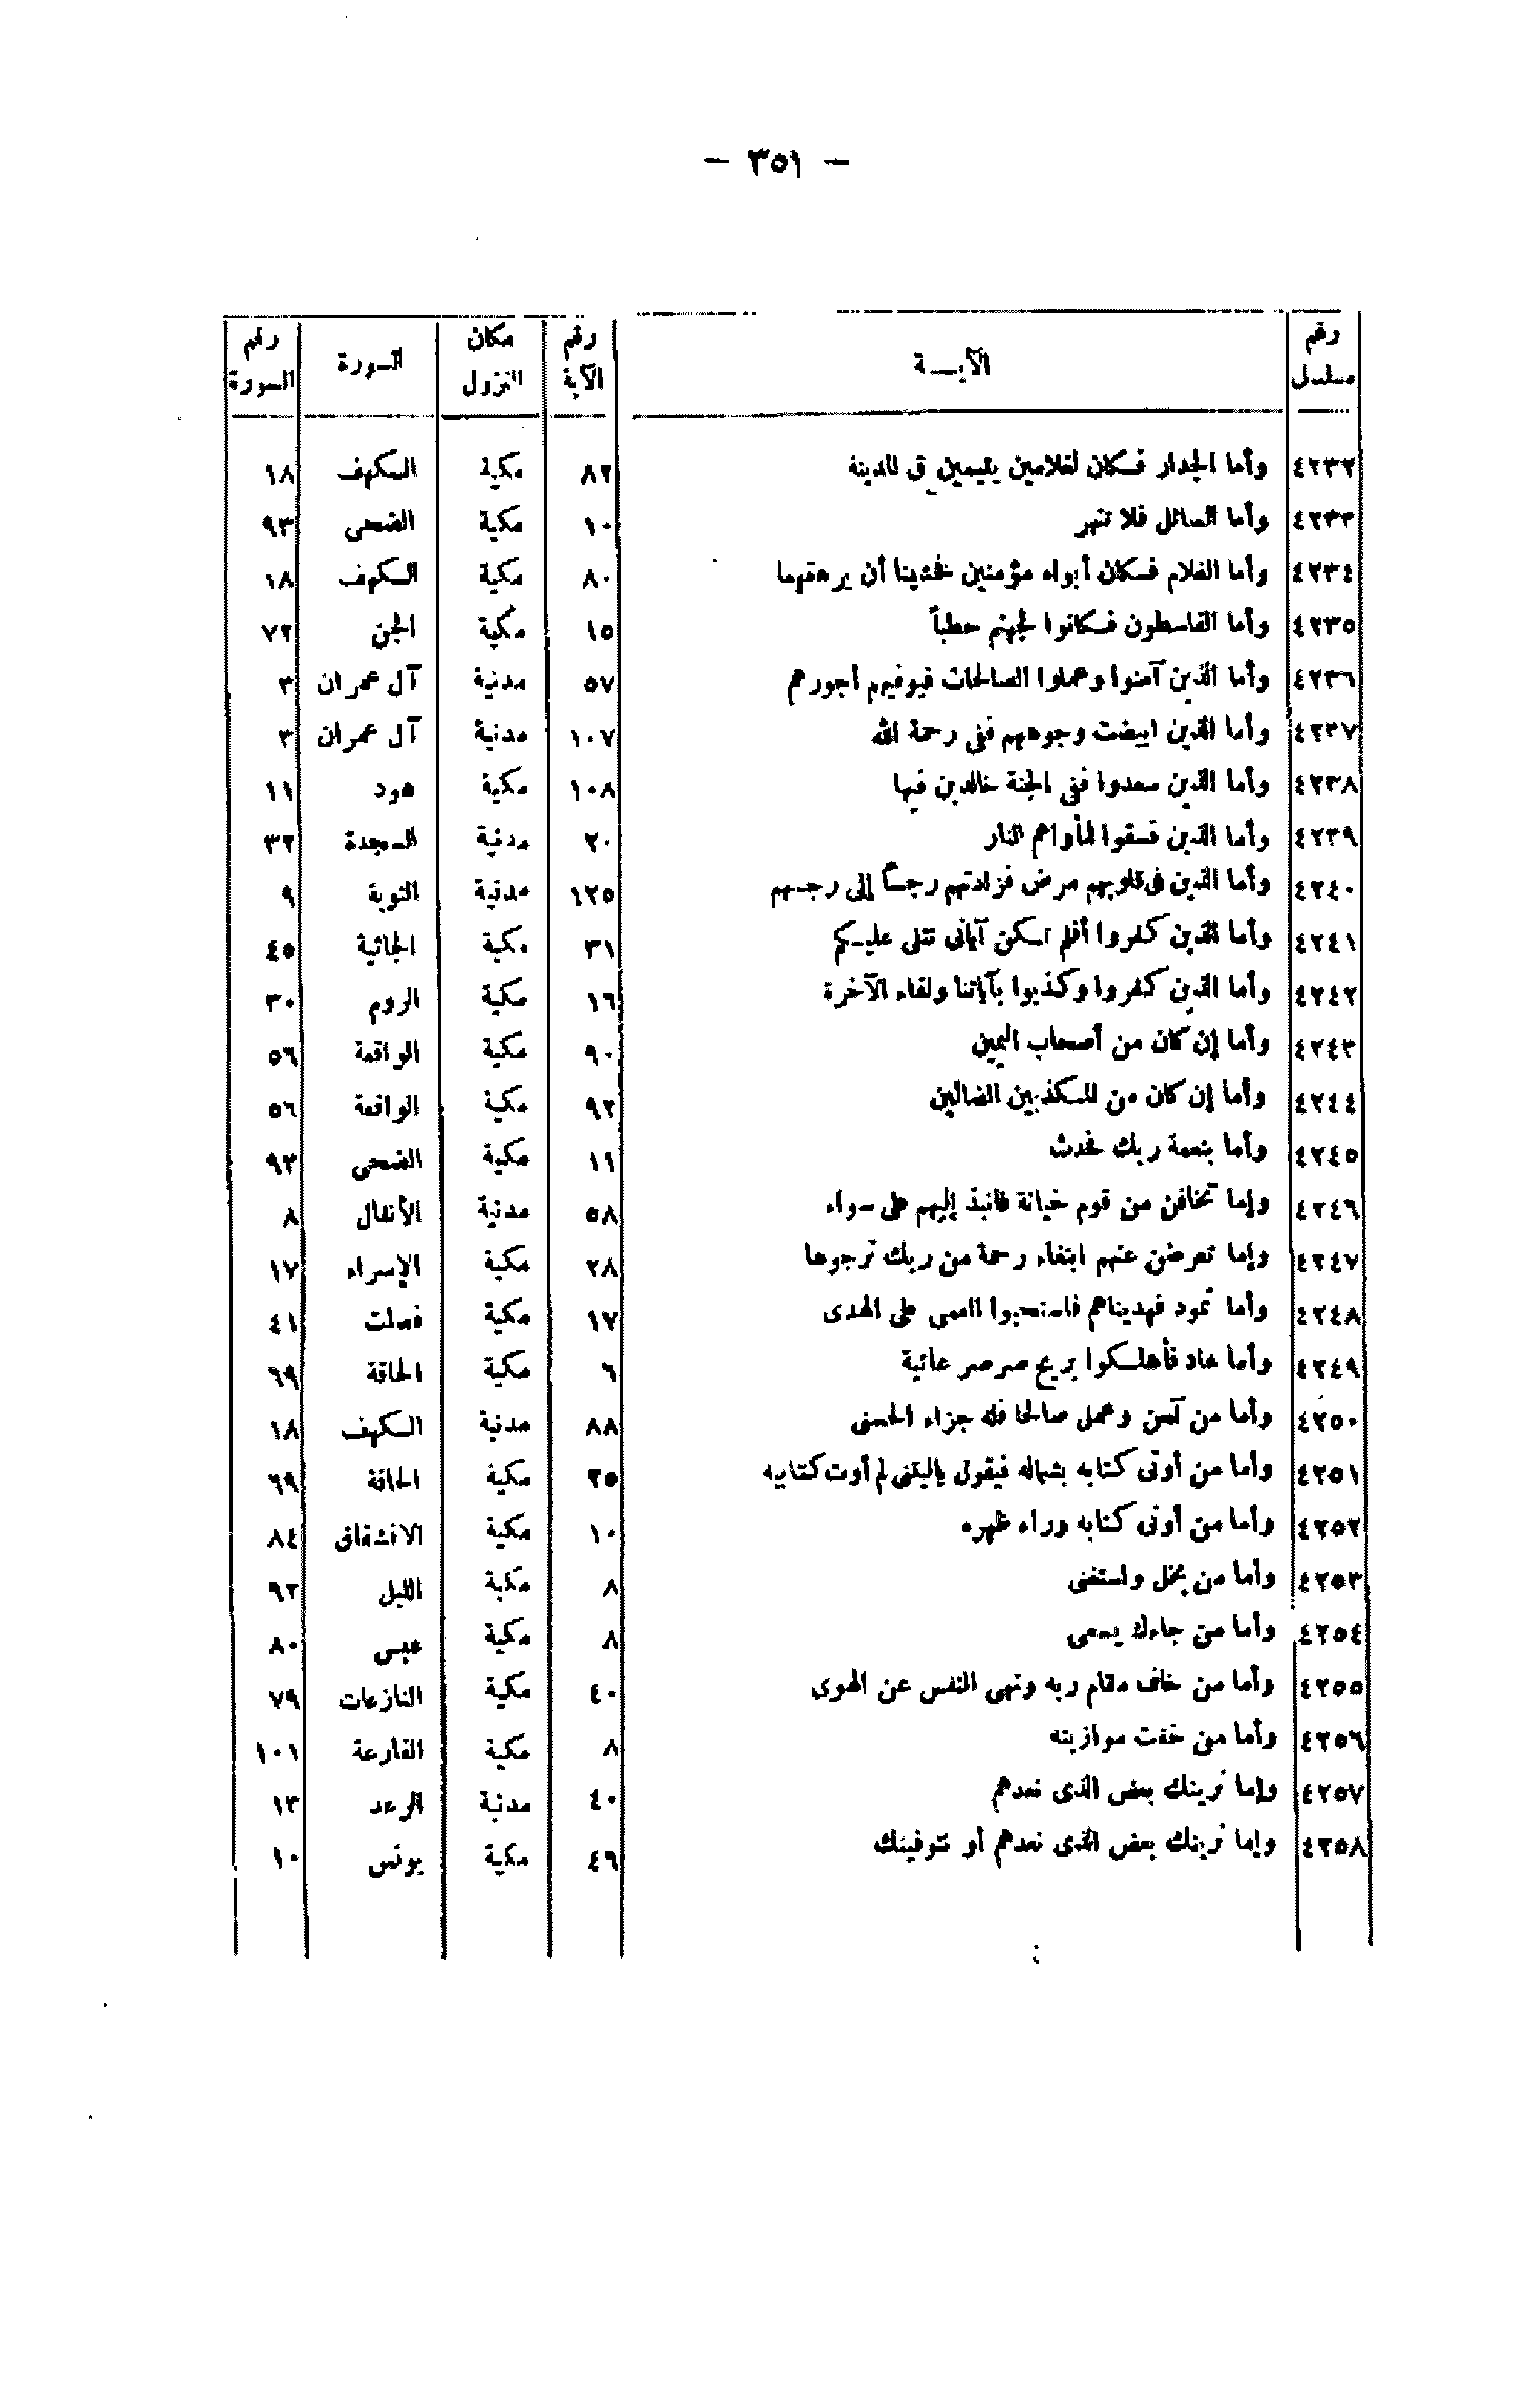 — ٣٥١ —
رقم مسلسل | الآيـــة | رقم الآية | مكان النزول | السورة | رقم السورة
٤٢٣٢ | وأما الجدار فكان لغلامين يتيمين فى المدينة | ٨٢ | مكية | الكهف | ١٨
٤٢٣٣ | وأما السائل فلا تنهر | ١٠ | مكية | الضحى | ٩٣
٤٢٣٤ | وأما الغلام فكان أبواه مؤمنين فخشينا أن يرهقهما | ٨٠ | مكية | الكهف | ١٨
٤٢٣٥ | وأما القاسطون فكانوا لجهنم حطباً | ١٥ | مكية | الجن | ٧٢
٤٢٣٦ | وأما الذين آمنوا وعملوا الصالحات فيوفيهم أجورهم | ٥٧ | مدنية | آل عمران | ٣
٤٢٣٧ | وأما الذين ابيضت وجوههم ففى رحمة الله | ١٠٧ | مدنية | آل عمران | ٣
٤٢٣٨ | وأما الذين سعدوا ففى الجنة خالدين فيها | ١٠٨ | مكية | هود | ١١
٤٢٣٩ | وأما الذين فسقوا فمأواهم النار | ٢٠ | مدنية | السجدة | ٣٢
٤٢٤٠ | وأما الذين فى قلوبهم مرض فزادتهم رجساً إلى رجسهم | ١٢٥ | مدنية | التوبة | ٩
٤٢٤١ | وأما الذين كفروا أفلم تكن آياتى تتلى عليكم | ٣١ | مكية | الجاثية | ٤٥
٤٢٤٢ | وأما الذين كفروا وكذبوا بآياتنا ولقاء الآخرة | ١٦ | مكية | الروم | ٣٠
٤٢٤٣ | وأما إن كان من أصحاب اليمين | ٩٠ | مكية | الواقعة | ٥٦
٤٢٤٤ | وأما إن كان من المكذبين الضالين | ٩٢ | مكية | الواقعة | ٥٦
٤٢٤٥ | وأما بنعمة ربك فحدث | ١١ | مكية | الضحى | ٩٣
٤٢٤٦ | وإما تخافن من قوم خيانة فانبذ إليهم على سواء | ٥٨ | مدنية | الأنفال | ٨
٤٢٤٧ | وإما تعرضن عنهم ابتغاء رحمة من ربك ترجوها | ٢٨ | مكية | الإسراء | ١٧
٤٢٤٨ | وأما ثمود فهديناهم فاستحبوا العمى على الهدى | ١٧ | مكية | فصلت | ٤١
٤٢٤٩ | وأما عاد فأهلكوا بريح صرصر عاتية | ٦ | مكية | الحاقة | ٦٩
٤٢٥٠ | وأما من آمن وعمل صالحا فله جزاء الحسنى | ٨٨ | مدنية | الكهف | ١٨
٤٢٥١ | وأما من أوتى كتابه بشماله فيقول ياليتنى لم أوت كتابيه | ٢٥ | مكية | الحاقة | ٦٩
٤٢٥٢ | وأما من أوتى كتابه وراء ظهره | ١٠ | مكية | الانشقاق | ٨٤
٤٢٥٣ | وأما من بخل واستغنى | ٨ | مكية | الليل | ٩٢
٤٢٥٤ | وأما من جاءك يسعى | ٨ | مكية | عبس | ٨٠
٤٢٥٥ | وأما من خاف مقام ربه ونهى النفس عن الهوى | ٤٠ | مكية | النازعات | ٧٩
٤٢٥٦ | وأما من خفت موازينه | ٨ | مكية | القارعة | ١٠١
٤٢٥٧ | وإما نرينك بعض الذى نعدهم | ٤٠ | مدنية | الرعد | ١٣
٤٢٥٨ | وإما نرينك بعض الذى نعدهم أو نتوفينك | ٤٦ | مكية | يونس | ١٠